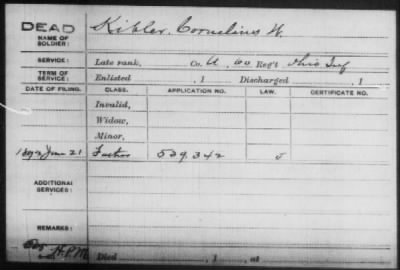 DEAD
NAME OF SOLDIER: Kibler, Cornelius W.
SERVICE: Late rank, Co. A, 60 Reg't Ohio Inf
TERM OF SERVICE: Enlisted , 1 Discharged , 1
DATE OF FILING. CLASS. APPLICATION NO. LAW. CERTIFICATE NO.
Invalid,
Widow,
Minor,
June 21 Father 529,342
ADDITIONAL SERVICES:
REMARKS:
Died , 1 , at